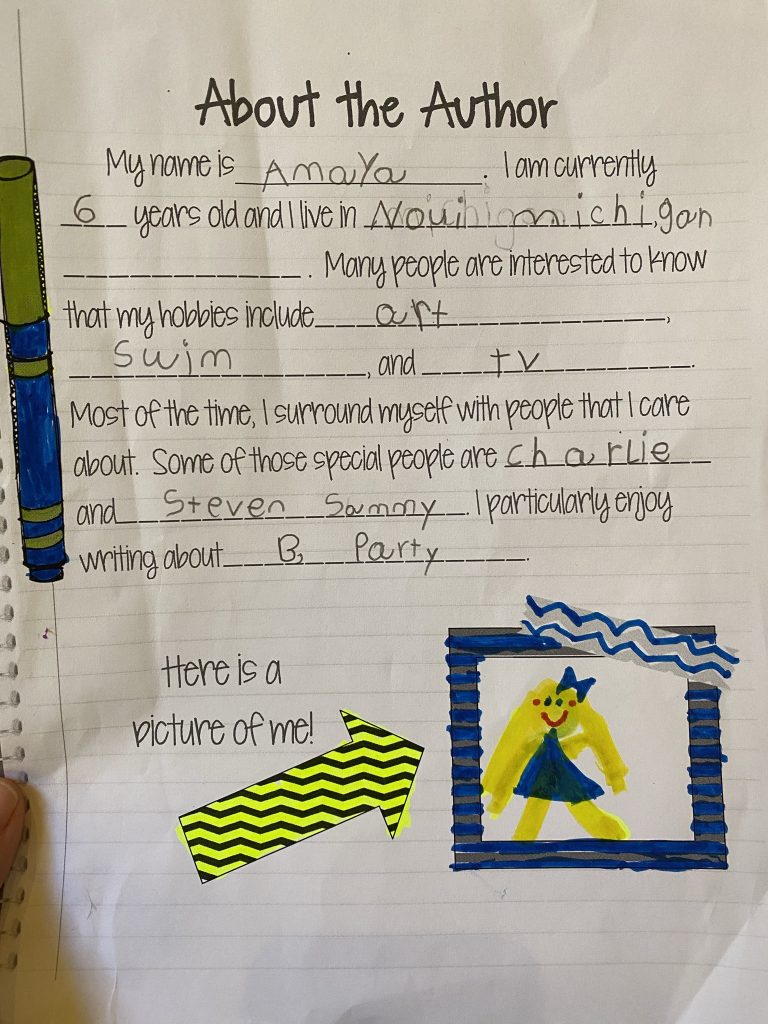 About the Author
My name is AmaYa. I am currently
6 years old and I live in Novi michi,gan
. Many people are interested to know
that my hobbies include art,
Swim, and tv.
Most of the time, I surround myself with people that I care
about. Some of those special people are charlie
and Steven Sammy. I particularly enjoy
writing about B, Party.
Here is a
picture of me!